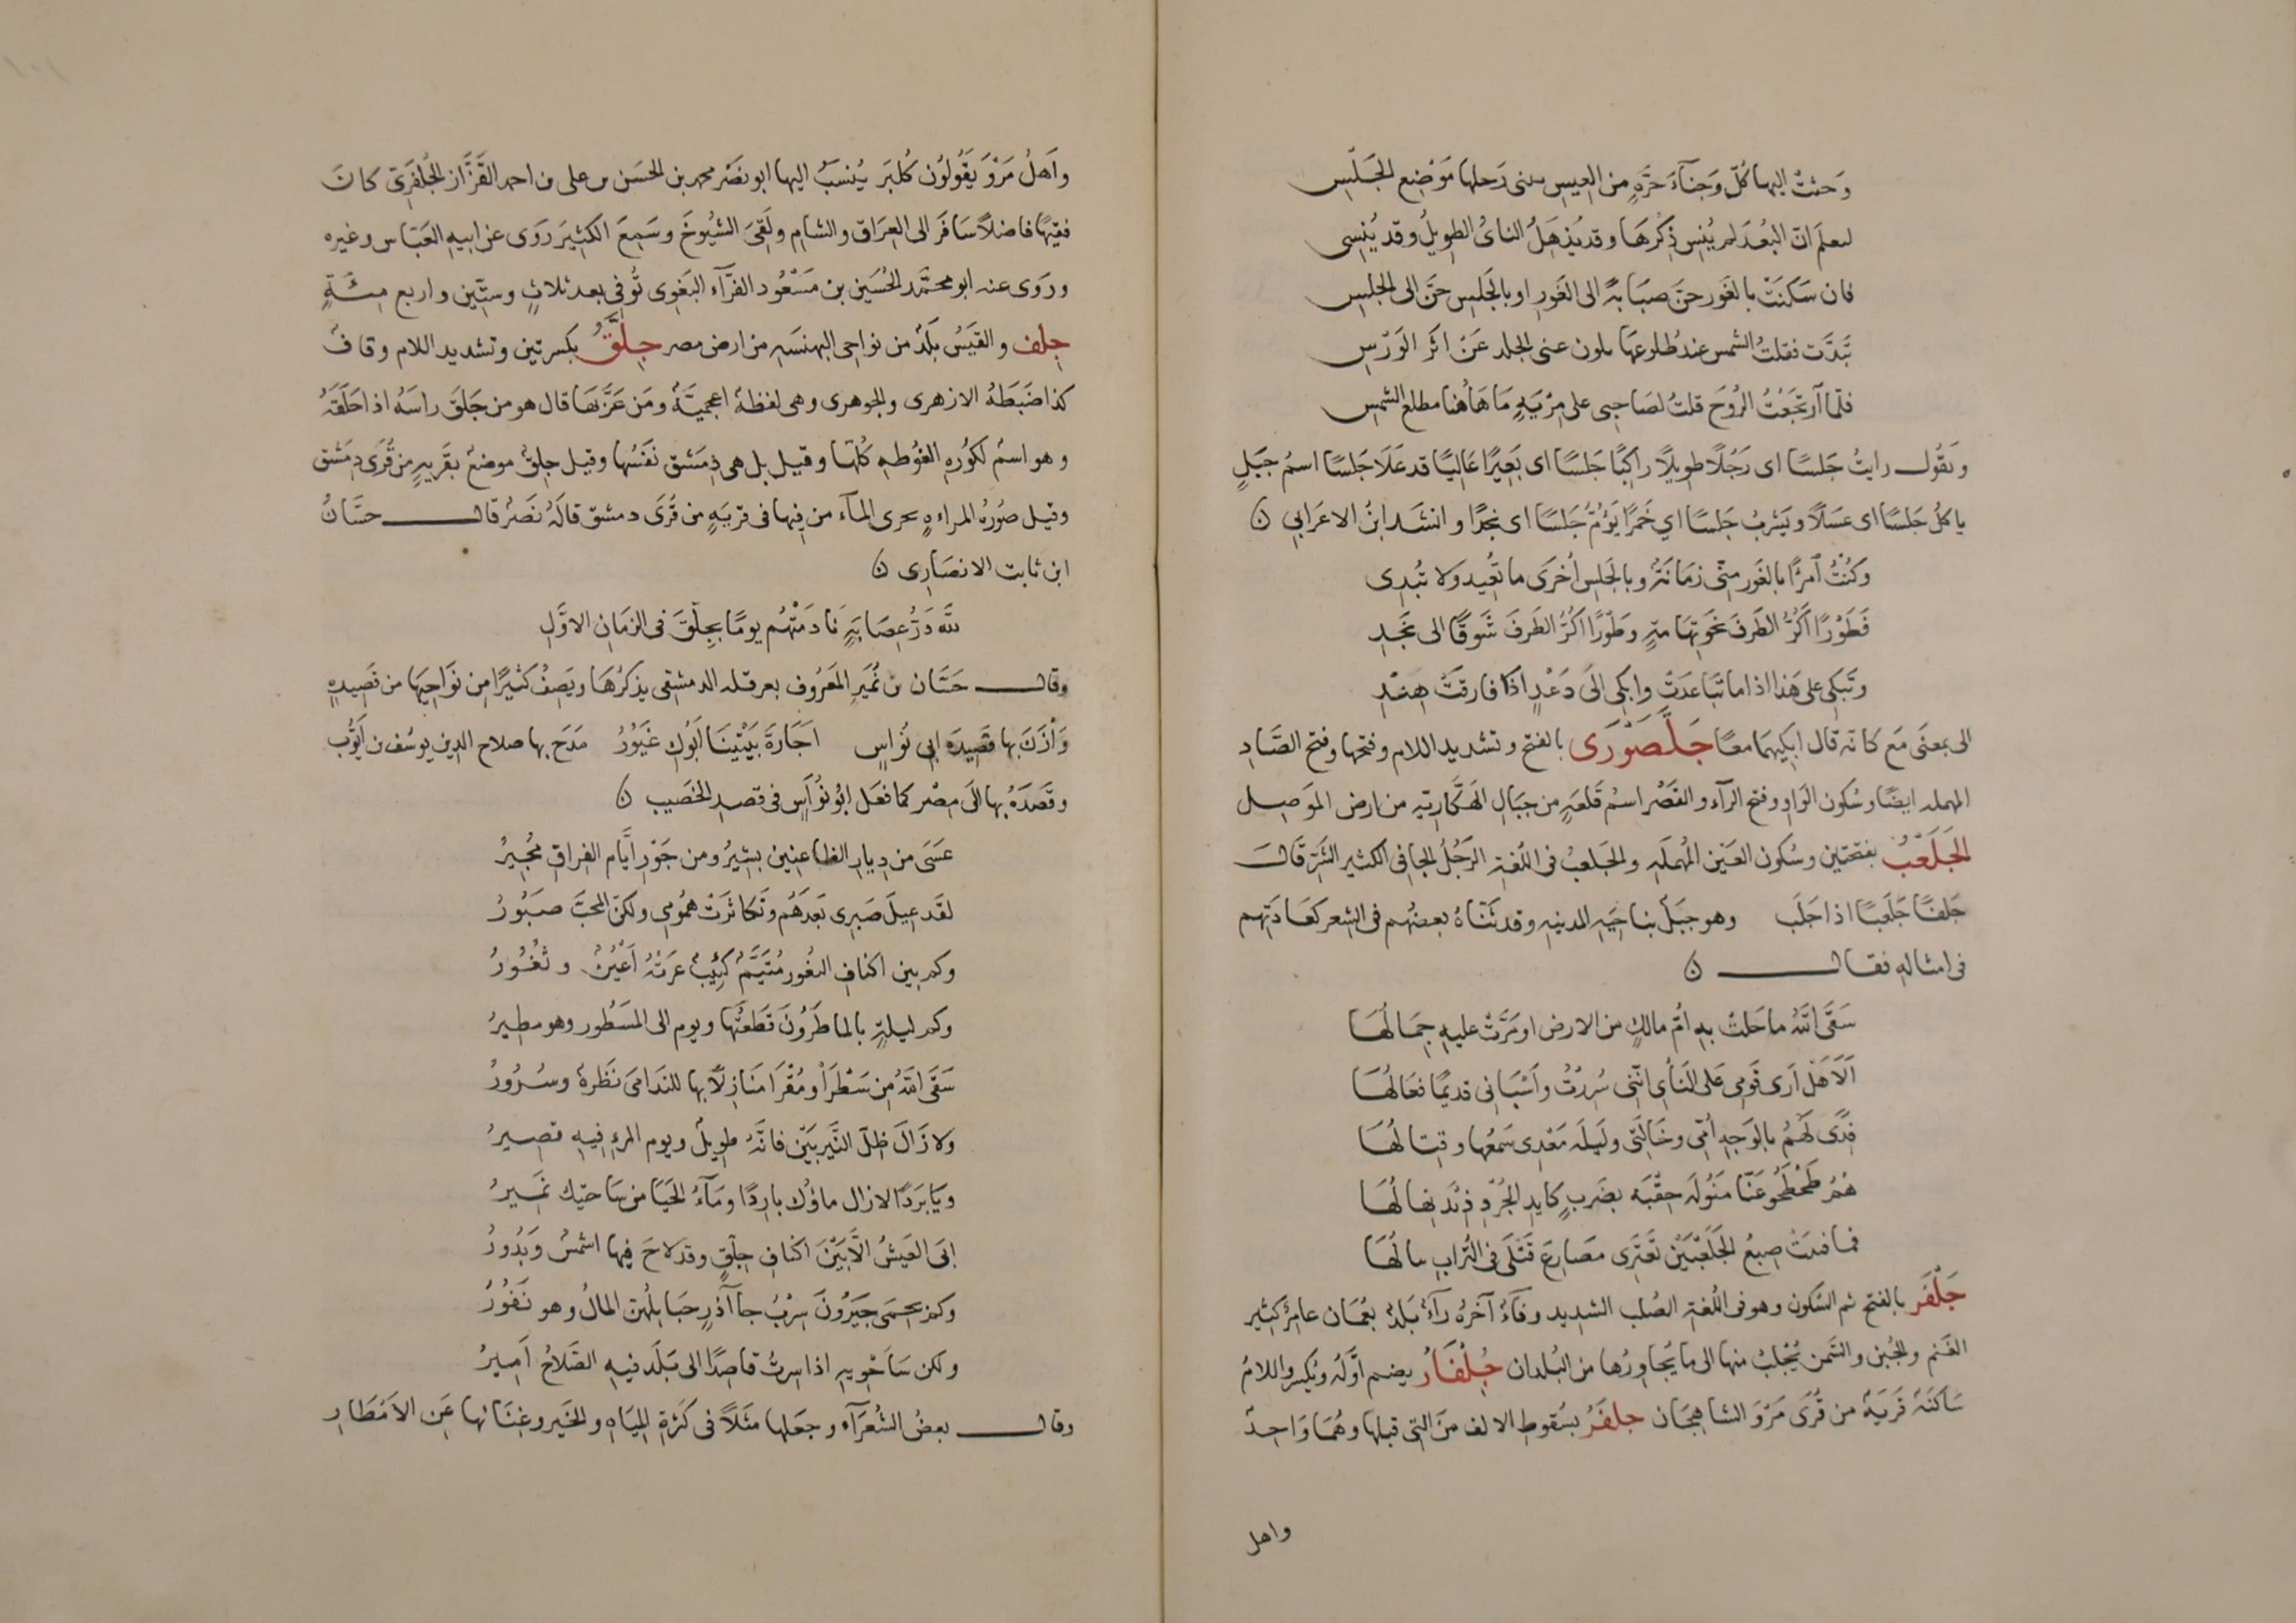 وَحثثْ اليها كُلّ وَجنآءَ حَرَّةٍ من العيس ىىنى رَحلها مَوْضِع الجَلْسِ
لىعلمَ انّ البُعْدَ لم يُنسِ ذِكْرَهَا وقد يُذهِلُ النائُ الطويلُ وقد يُنسِى
فان سَكنَتْ بالغَور حنّ صبَابةً الى الغَورِ او بالجَلسِ حنَّ الى الجلسِ
تَبَدَّت فقلتُ الشمس عند طُلوعها ىلون عنى الجلد عَنْ اثَر الوَرْسِ
فلمّا آرتجَعْتُ الرُوحَ قلتُ لصَاحِبى على مِرْيَةٍ مَا هَاهُنا مطلع الشمس
وَىَقُول رايتُ جَلسًا اى رَجُلاً طويلاً رَاكِبًا جَلسًا اى بَعِيرًا عَاليًا قد عَلَا جَلسًا اسمُ جبَلٍ
ياكلُ جَلسًا اى عسَلاً ويَشربُ جَلسًا اي خَمرًا يَؤُمُّ جَلسًا اى نجدًا وانشد ابنُ الاعرَابي ن
وكُنْتُ آمرَأً بالغَور منّى زمَانَةٌ وبالجَلسِ اُخرَى ما تُعِيد ولا تُبدِى
فَطَوْرًا اَكُرُّ الطَرفَ نحوَ تِهَامةٍ وطَوْرًا اَكُرُّ الطَرفَ شَوقًا الى نَجدِ
وتَبكِى على هَذا اذا ما تَبَاعدَتْ وابكِى الَى دَعْدٍ اذَا فارقَتْ هِنْدِ
الى بمعنَى مَع كانه قال ابكيهما معًا جَلَّصَوْرَى بالفتح وتشديد اللام وفتحها وفتح الصَّادِ
المهمله ايضًا وسُكون الوَاو وفتح الرآء والقَصْر اسمُ قَلعَةٍ من جبَالِ الهَكّاريّه من ارض المَوصِل
الجَلَعْبُ بفتحتين وسُكون العَيْن المُهملَه والجَلعبُ فى اللُغة الرَجُلُ الجافى الكثير الشَرّ قَالَ
جَلفًا جَلَعبًا اذا جَلَب وهو جبَلٌ بناحيَةِ المدينه وقد ثَنّاهُ بعضهُم فى الشعر كعَادَتِهم
فى امثالهِ فقال ن
سَقَى اللهُ ما حَلتْ بهِ امُّ مالكٍ من الارض او مَرَّتْ عليهِ جِمَالُهَا
اَلاَ هَلْ اَرى قَومِى عَلى النَأيِ انّنى سُررْتُ وَاَسْبَانى قديمًا فعَالُهَا
فِدًى لَهُمُ بالوَجدِ اُمّى وخَالتى ولَيلَه مَعْدِى سَمعُها وقتالُهَا
هُمُ طَحْطَحُوا عَنّا مَنُولَه حِقْبَه بضَربٍ كايدِ الجُرْدِ ذنْدَ نِهالُهَا
فما فتئتْ ضبعُ الجَلَعْبَيْن تعْتَرِى مَصَارعَ قَتْلَى فى التُرابِ سبالُهَا
جَلْفَر بالفتح ثم السّكون وهو فى اللُغة الصُلب الشديد وفآءٌ آخرهُ رآءٌ بَلدٌ بعُمَان عامِرٌ كثير
الغَنم والجُبن والسَمن يُجْلبُ منها الى ما يُجَاوِرُها من البُلدان جُلْفَارُ بضم اوَّله ويُكسر واللامُ
سَاكنَة قَريَة من قُرَى مَرْوَ الشاهِجَان جلفَرُ بسُقوط الالف منَ التى قبلها وهُمَا وَاحِدٌ
واهل
واَهلُ مَرْوَ يَقُولُون كُلبَر يُنسَبُ اليها ابو نصْر محمد بن الحسَن بن على بن احمد القَزَّاز الجُلفَرِىّ كانَ
فقيهًا فاضلاً سَافَر الى العِرَاق والشامِ ولَقِىَ الشيُوخَ وسَمِعَ الكثِيرَ رَوَى عن ابيهِ العَبّاس وغيره
وروَى عنه ابو محمّد الحُسَين بن مَسْعُود الفرّآء البَغوِى تُوفى بعد ثلاثٍ وستّين واربع مئةٍ
جِلف والقَيسُ بلَدٌ من نواحى البهنسَه من ارض مصر جِلِّقُ بكسرتين وتشديد اللام وقافٌ
كذا ضَبَطَهُ الازهرى والجوهرى وهى لفظهٌ اعجميَّةٌ ومَن عَرَّبَهَا قال هو من جَلقَ راسَهُ اذا حَلقَهُ
وهو اسمٌ لكوره الغُوطه كُلّها وقيل بل هى دِمَشق نفسُها وقيل جِلقُ موضعٌ بقَريةٍ من قُرَى دِمَشق
وقيل صُورهُ امراهٍ يجرى المآء من فِيها فى قريَةٍ من قُرَى دمشق قالَهُ نَصْرٌ قال حسَّانُ
ابن ثابت الانصَارى ن
للهِ دَرُّ عِصَابَةٍ نادَمْتُهُم يومًا بجِلِّقَ فى الزمَانِ الاوَّلِ
وقال حسَّان بن نُمَير المَعرُوف بعرقله الدمشقى يذكرُهَا ويَصِفُ كثيرًا من نَوَاحِيهَا من قَصِيدهٍ
وَازَنَ بها قصِيدَه ابى نُوَاسٍ اَجَارةَ بَيْتَيْنَا اَبُوكِ غَيُورُ مَدَح بها صلاح الدين يوسُف بن اَيّوب
وقَصَدَهُ بها الَى مِصْر كما فعَل ابُو نوُاسٍ فى قصد الخَصِيب ن
عَسَى من دِيارِ الظاعِنِين بشيرُ ومن جَوْرِ اَيّام الفراقِ مُجِيرُ
لقَد عِيلَ صَبرِى بَعدَهُم وتكاثرَتْ همُومى ولكنّ المحبَّ صبُورُ
وكم بين اكنافِ الثغُور مُتَيَّمٌ كَئِيبٌ عَزَتْهُ اَعْيُنٌ وثُغُورُ
وكم ليلةٍ بالماطَرُونَ قَطَعتُها ويوم الى المَسطُور وهو مطيرُ
سَقَى اللهُ من سَطْرَا ومُقْرَا مَنازِلاً بها للندَامَى نَظرهٌ وسُرُورُ
ولا زَالَ ظلّ النَّيربَيْن فانّهُ طويلٌ ويوم المرءِ فيهِ قصيرُ
ويَا بَرَدًا لا زال ماؤُك باردًا ومَآءُ الحيَا من سَاحتيك نَميرُ
ابَى العَيشُ الّا بَيْنَ اكنافِ جِلّقٍ وقد لاحَ فيها اشمسٌ وَبُدُورُ
وكم بحمَى جَيرُونَ سِرْبُ جآذرٍ حبَائلهُن المالُ وهو نَفُورُ
ولكن سَاَحْوِيه اذا سِرتُ قاصِدًا الى بَلَد فيهِ الصَلاحُ اَميرُ
وقال بعضُ الشُعرَآء وجعَلها مثَلاً فى كثرَة المِيَاهِ والخَير وغِنَائها عَن الاَمطَارِ